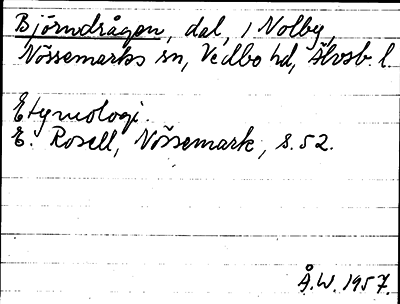 Björndrågen, dal, i Nolby,
Nössemarks sn, Vedbo hd, Älvsb. l.
Etymologi.
E. Rosell, Nössemark, s. 52.
Å.W. 1957.